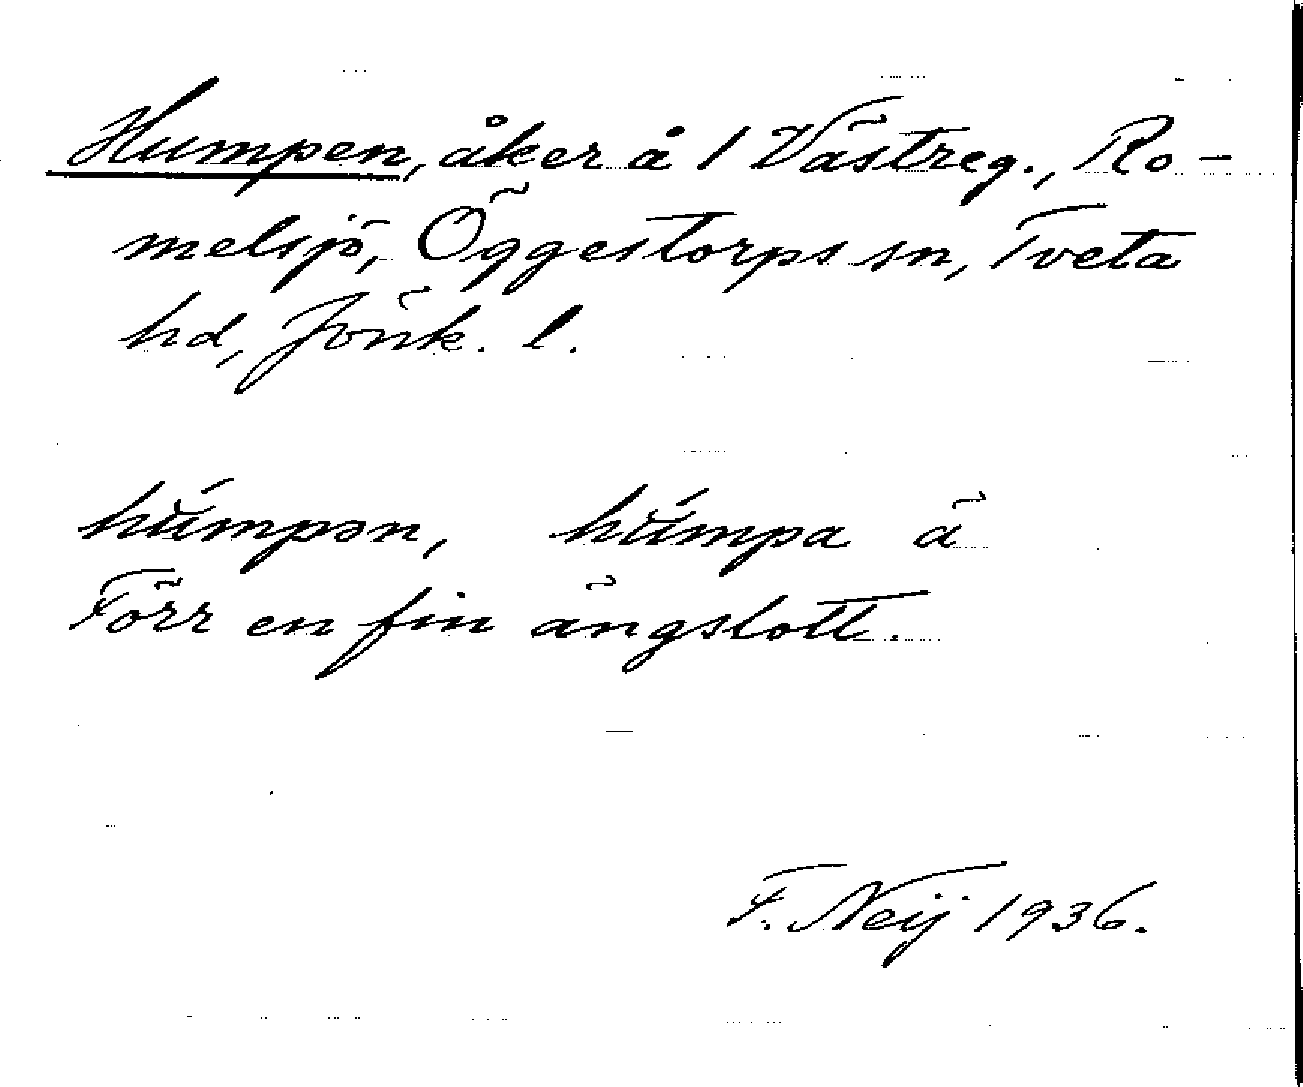 Humpen, åker å 1 Västreg., Ro-
melsjö, Öggestorps sn, Tveta
hd, Jönk. l.
hu̇́mpən, hu̇́mpa ä
Förr en fin ängslott.
F. Neij 1936.